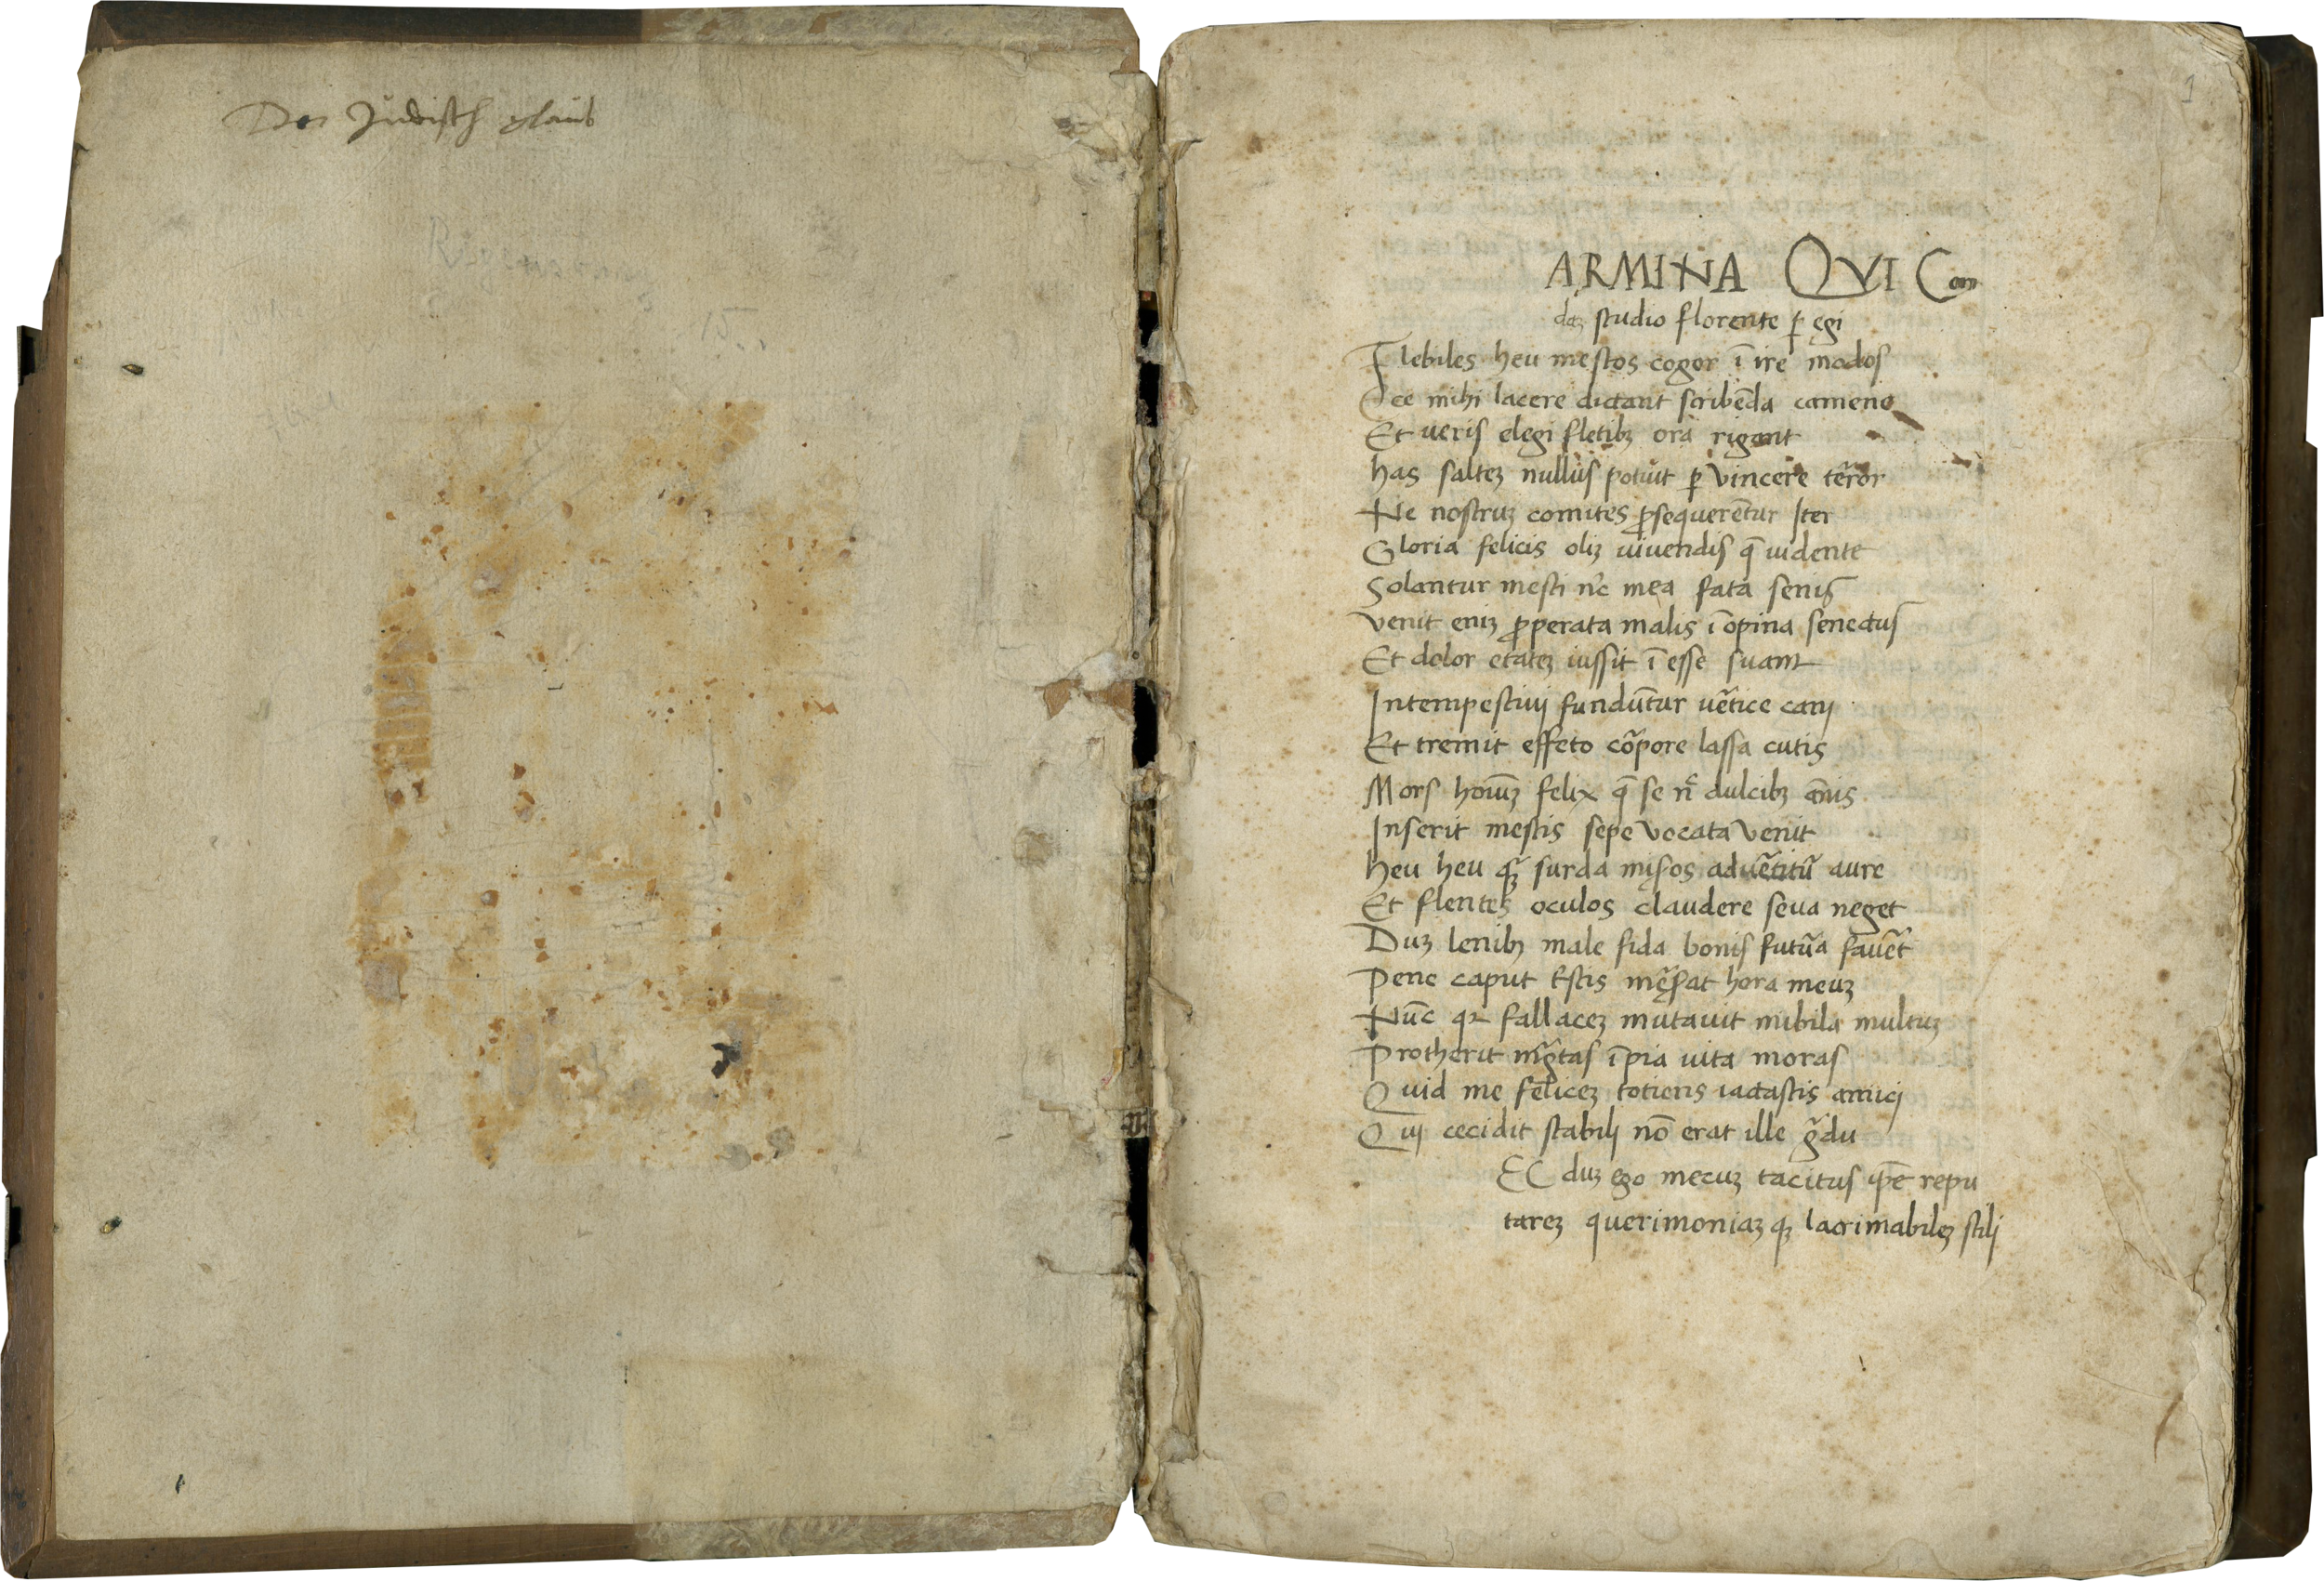 Der Jüdisch glaub
1
ARMINA QVI Con
daʒ studio florente ꝑ egi
Flebiles heu mestos cogor ī ire modos
Ecce mihi lacere dictant scribēda camene
Et ueris elegi fletibꝫ ora rigant
has salteʒ nullus potuit ꝑ vincere tẽror
Ne nostruʒ comites ꝓsequerētur Iter
Gloria felicis oliʒ uiuendis q̄ uidente
Solantur mesti nc̄ mea fata senis
venit eniʒ ꝓperata malis ī opina senectus
Et dolor etateʒ iussit ī esse suam
Intempestiuij fundūtur uẽtice canj
Et tremit effeto cõpore lassa cutis
Mors homīuʒ felix q̄ se nc̄ dulcibꝫ annis
Inserit mestis sepe vocata venit
heu heu qʒ̃ surda misos aduẽtitũ aure
Et flentes oculos claudere seua neget
Duʒ leuibꝫ male fida bonis futũa fauẽt
Pene caput tristis męsat hora meuʒ
Nūc qꝛ fallaceʒ mutauit nubila multuʒ
Protherit ingtas īpia uita moras
Quid me feliceʒ totiens iactastis amicj
Quj cecidit stabilj nō erat ille g̃du
EC duʒ ego mecuʒ tacitus ip̄e repu
tareʒ querimoniaʒ qʒ lacrimabileʒ stilj